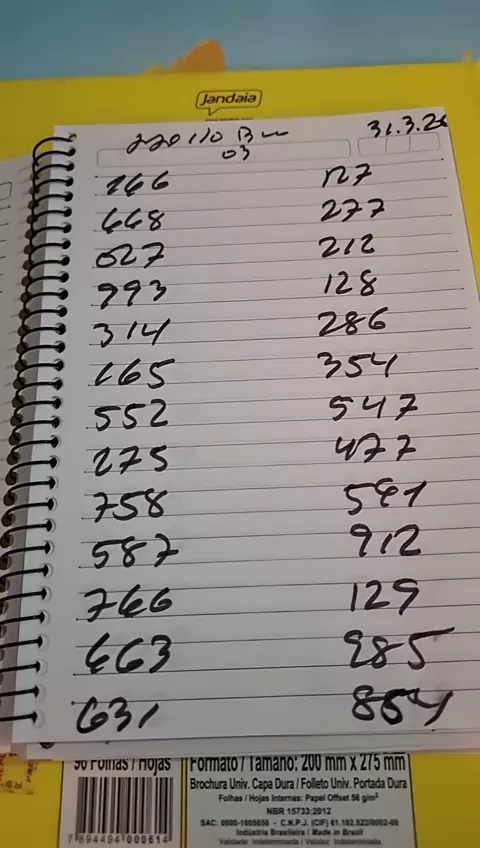 Jandaia
31.3.26
03
166 127
668 277
027 212
993 128
314 286
165 354
552 547
275 477
758 591
587 912
766 129
663 985
631 854
96 Folhas / Hojas
Formato / Tamanho: 200 mm x 275 mm
Brochura Univ. Capa Dura / Folleto Univ. Portada Dura
Folhas / Hojas Internas: Papel Offset 56 g/m²
NBR 15733:2012
SAC: 0800-1605656 - C.N.P.J. (CIF) 61.192.522/0002-08
Indústria Brasileira / Made in Brazil
Validade Indeterminada / Validez Indeterminada
7 894494 000614